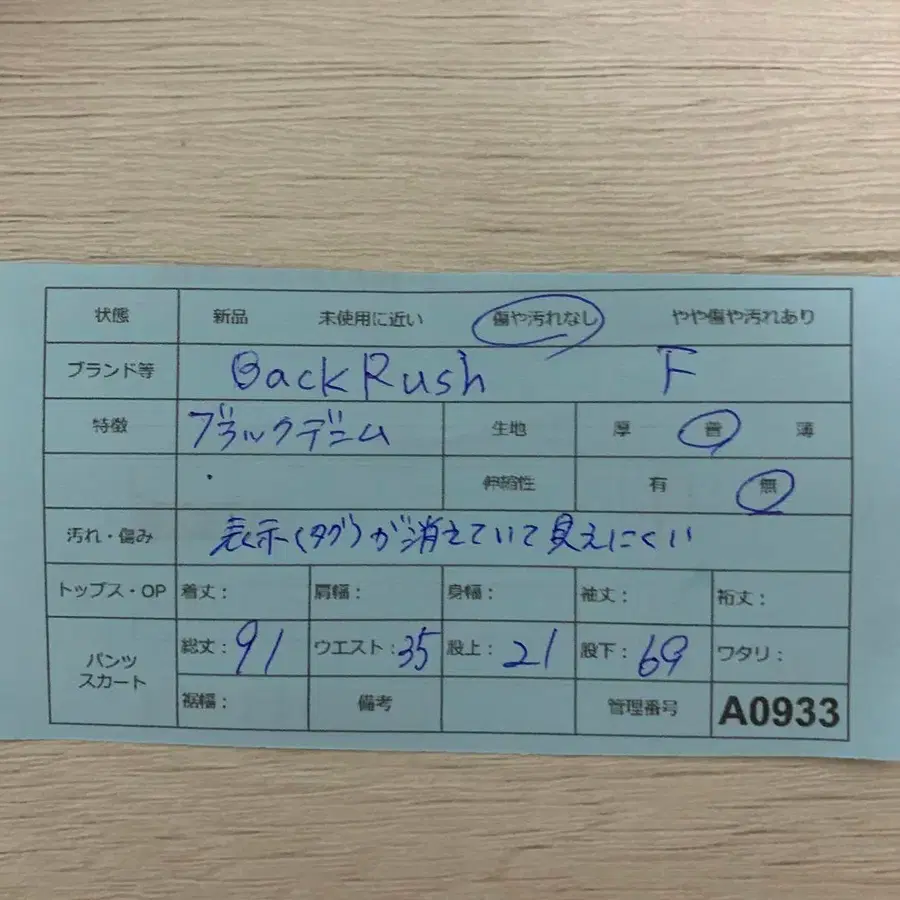 状態 新品 未使用に近い 傷や汚れなし やや傷や汚れあり
ブランド等 BackRush F
特徴 ブラックデニム 生地 厚 普 薄
伸縮性 有 無
汚れ・傷み 表示(タグ)が消えていて見えにくい
トップス・OP 着丈： 肩幅： 身幅： 袖丈： 裄丈：
パンツ スカート 総丈：91 ウエスト：35 股上：21 股下：69 ワタリ：
裾幅： 備考 管理番号 A0933